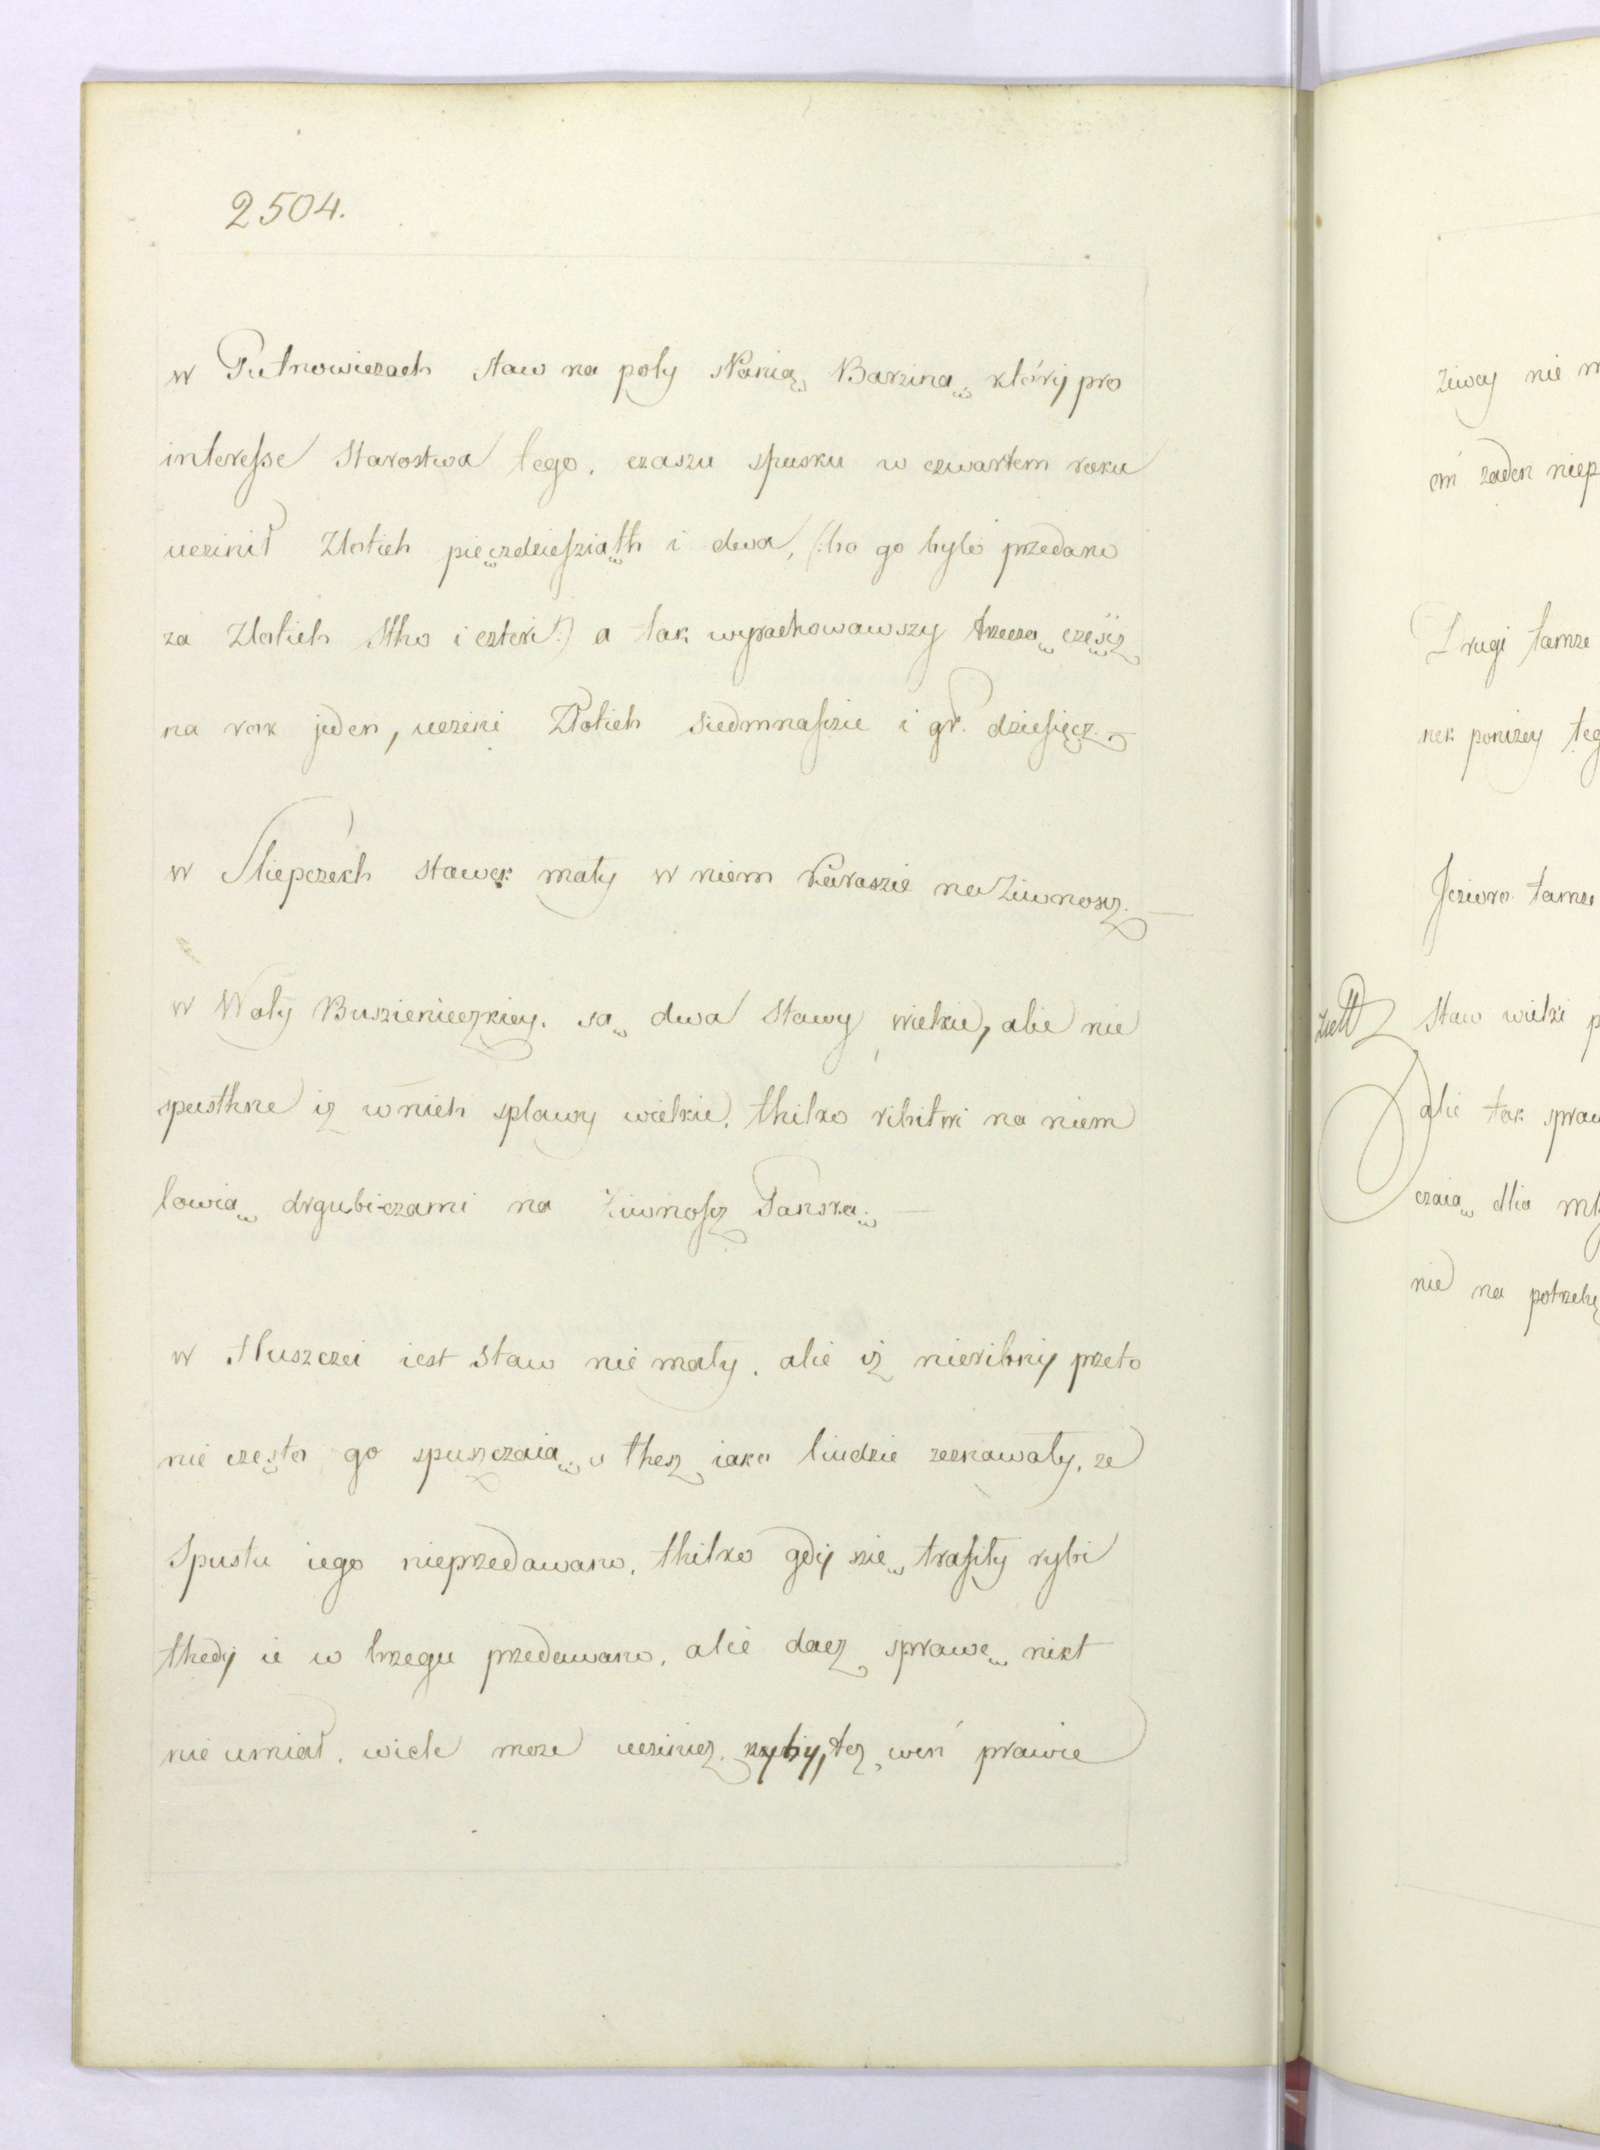 2504.
w Putnowiczach staw na poły s Panią Barziną, któríj pro
interesse Starostwa tego, czaszu spusku w czwartem roku
uczinił Złotich pięczdziesziąth i dwa, (:bo go byłó przedano
za Złotich Stho i czteri:) a tak wyrachowawszy trzeczą częśćz
na rok jeden, uczini Złotich Siedmnaszie i gr. dziesięcz.
w Sliepczech stawek mały w niem karaszie na Ziwnoscz. —
w Woly Buszienieczkiey. są dwa Stawy wielkie, alie nie
spusthne iz w nich spławy wielkie, thilko ribitwi na niem
łowią drgubiczami na Ziwnoscz Panską. —
w Tłuszczei iest Staw nie mały. alie iz nieribníj przeto
nie często go spuszczaią, i thesz iako liudzie zeznawały, ze
Spustu iego nieprzedawano, thilko gdij szię trafiły rybi
thedij ie w brzegu przedawano, alie dacz sprawę nikt
nie umiał, wiele może uczinicz, ryby, tez weń prawie
Ziwcy nie
żaden niep
Drugi tamze
nek ponizey teg
Jezioro tamze
Staw wielki p
alie tak spraw
czaią dlia
nie na potrzebę